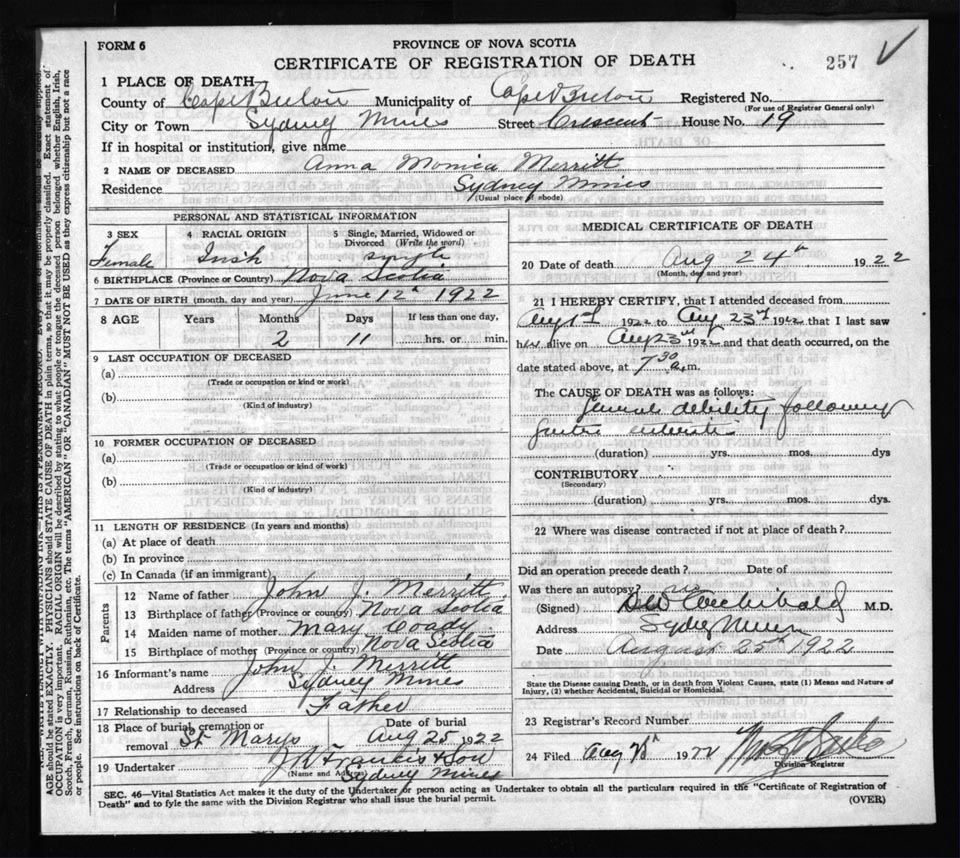 FORM 6
PROVINCE OF NOVA SCOTIA
CERTIFICATE OF REGISTRATION OF DEATH
257
1 PLACE OF DEATH
County of Cape Breton Municipality of Cape Breton Registered No.
(For use of Registrar General only)
City or Town Sydney Mines Street Crescent House No. 19
If in hospital or institution, give name
2 NAME OF DECEASED Anna Monica Merritt
Residence Sydney Mines
(Usual place of abode)
PERSONAL AND STATISTICAL INFORMATION
3 SEX 4 RACIAL ORIGIN 5 Single, Married, Widowed or Divorced (Write the word)
Female Irish single
6 BIRTHPLACE (Province or Country) Nova Scotia
7 DATE OF BIRTH (month, day and year) June 12th 1922
8 AGE Years Months Days If less than one day,
2 11 hrs. or min.
9 LAST OCCUPATION OF DECEASED
(a)
(Trade or occupation or kind or work)
(b)
(Kind of industry)
10 FORMER OCCUPATION OF DECEASED
(a)
(Trade or occupation or kind of work)
(b)
(Kind of industry)
11 LENGTH OF RESIDENCE (In years and months)
(a) At place of death
(b) In province
(c) In Canada (if an immigrant)
Parents
12 Name of father John J. Merritt
13 Birthplace of father (Province or country) Nova Scotia
14 Maiden name of mother Mary Coady
15 Birthplace of mother (Province or country) Nova Scotia
16 Informant's name John J. Merritt
Address Sydney Mines
17 Relationship to deceased Father
18 Place of burial, cremation or Date of burial
removal St Marys Aug 25 1922
19 Undertaker J R Francis & Son
(Name and Address) Sydney Mines
MEDICAL CERTIFICATE OF DEATH
20 Date of death Aug 24th 1922
(Month, day and year)
21 I HEREBY CERTIFY, that I attended deceased from
Aug 1st 1922 to Aug 23rd 1922 that I last saw
her alive on Aug 23rd 1922 and that death occurred, on the
date stated above, at 7.30 a.m.
The CAUSE OF DEATH was as follows:
General debility following
gastro enteritis
(duration) yrs. mos. dys
CONTRIBUTORY
(Secondary)
(duration) yrs. mos. dys.
22 Where was disease contracted if not at place of death?
Did an operation precede death? Date of
Was there an autopsy? no
(Signed) Archibald M.D.
Address Sydney Mines
Date August 25th 1922
State the Disease causing Death, or in death from Violent Causes, state (1) Means and Nature of
Injury, (2) whether Accidental, Suicidal or Homicidal.
23 Registrar's Record Number
24 Filed Aug 1922
Division Registrar
SEC. 46—Vital Statistics Act makes it the duty of the Undertaker or person acting as Undertaker to obtain all the particulars required in the "Certificate of Registration of
Death" and to fyle the same with the Division Registrar who shall issue the burial permit. (OVER)
AGE should be stated EXACTLY. PHYSICIANS should STATE CAUSE OF DEATH in plain terms, so that it may be properly classified. Exact statement of
OCCUPATION is very important. RACIAL ORIGIN will be described by stating to what people or tongue the deceased person belonged whether English, Irish,
Scotch, French, German, Russian, Ruthenian, etc. The terms "AMERICAN" OR "CANADIAN" MUST NOT BE USED as they express citizenship but not a race
or people. See instructions on back of Certificate.